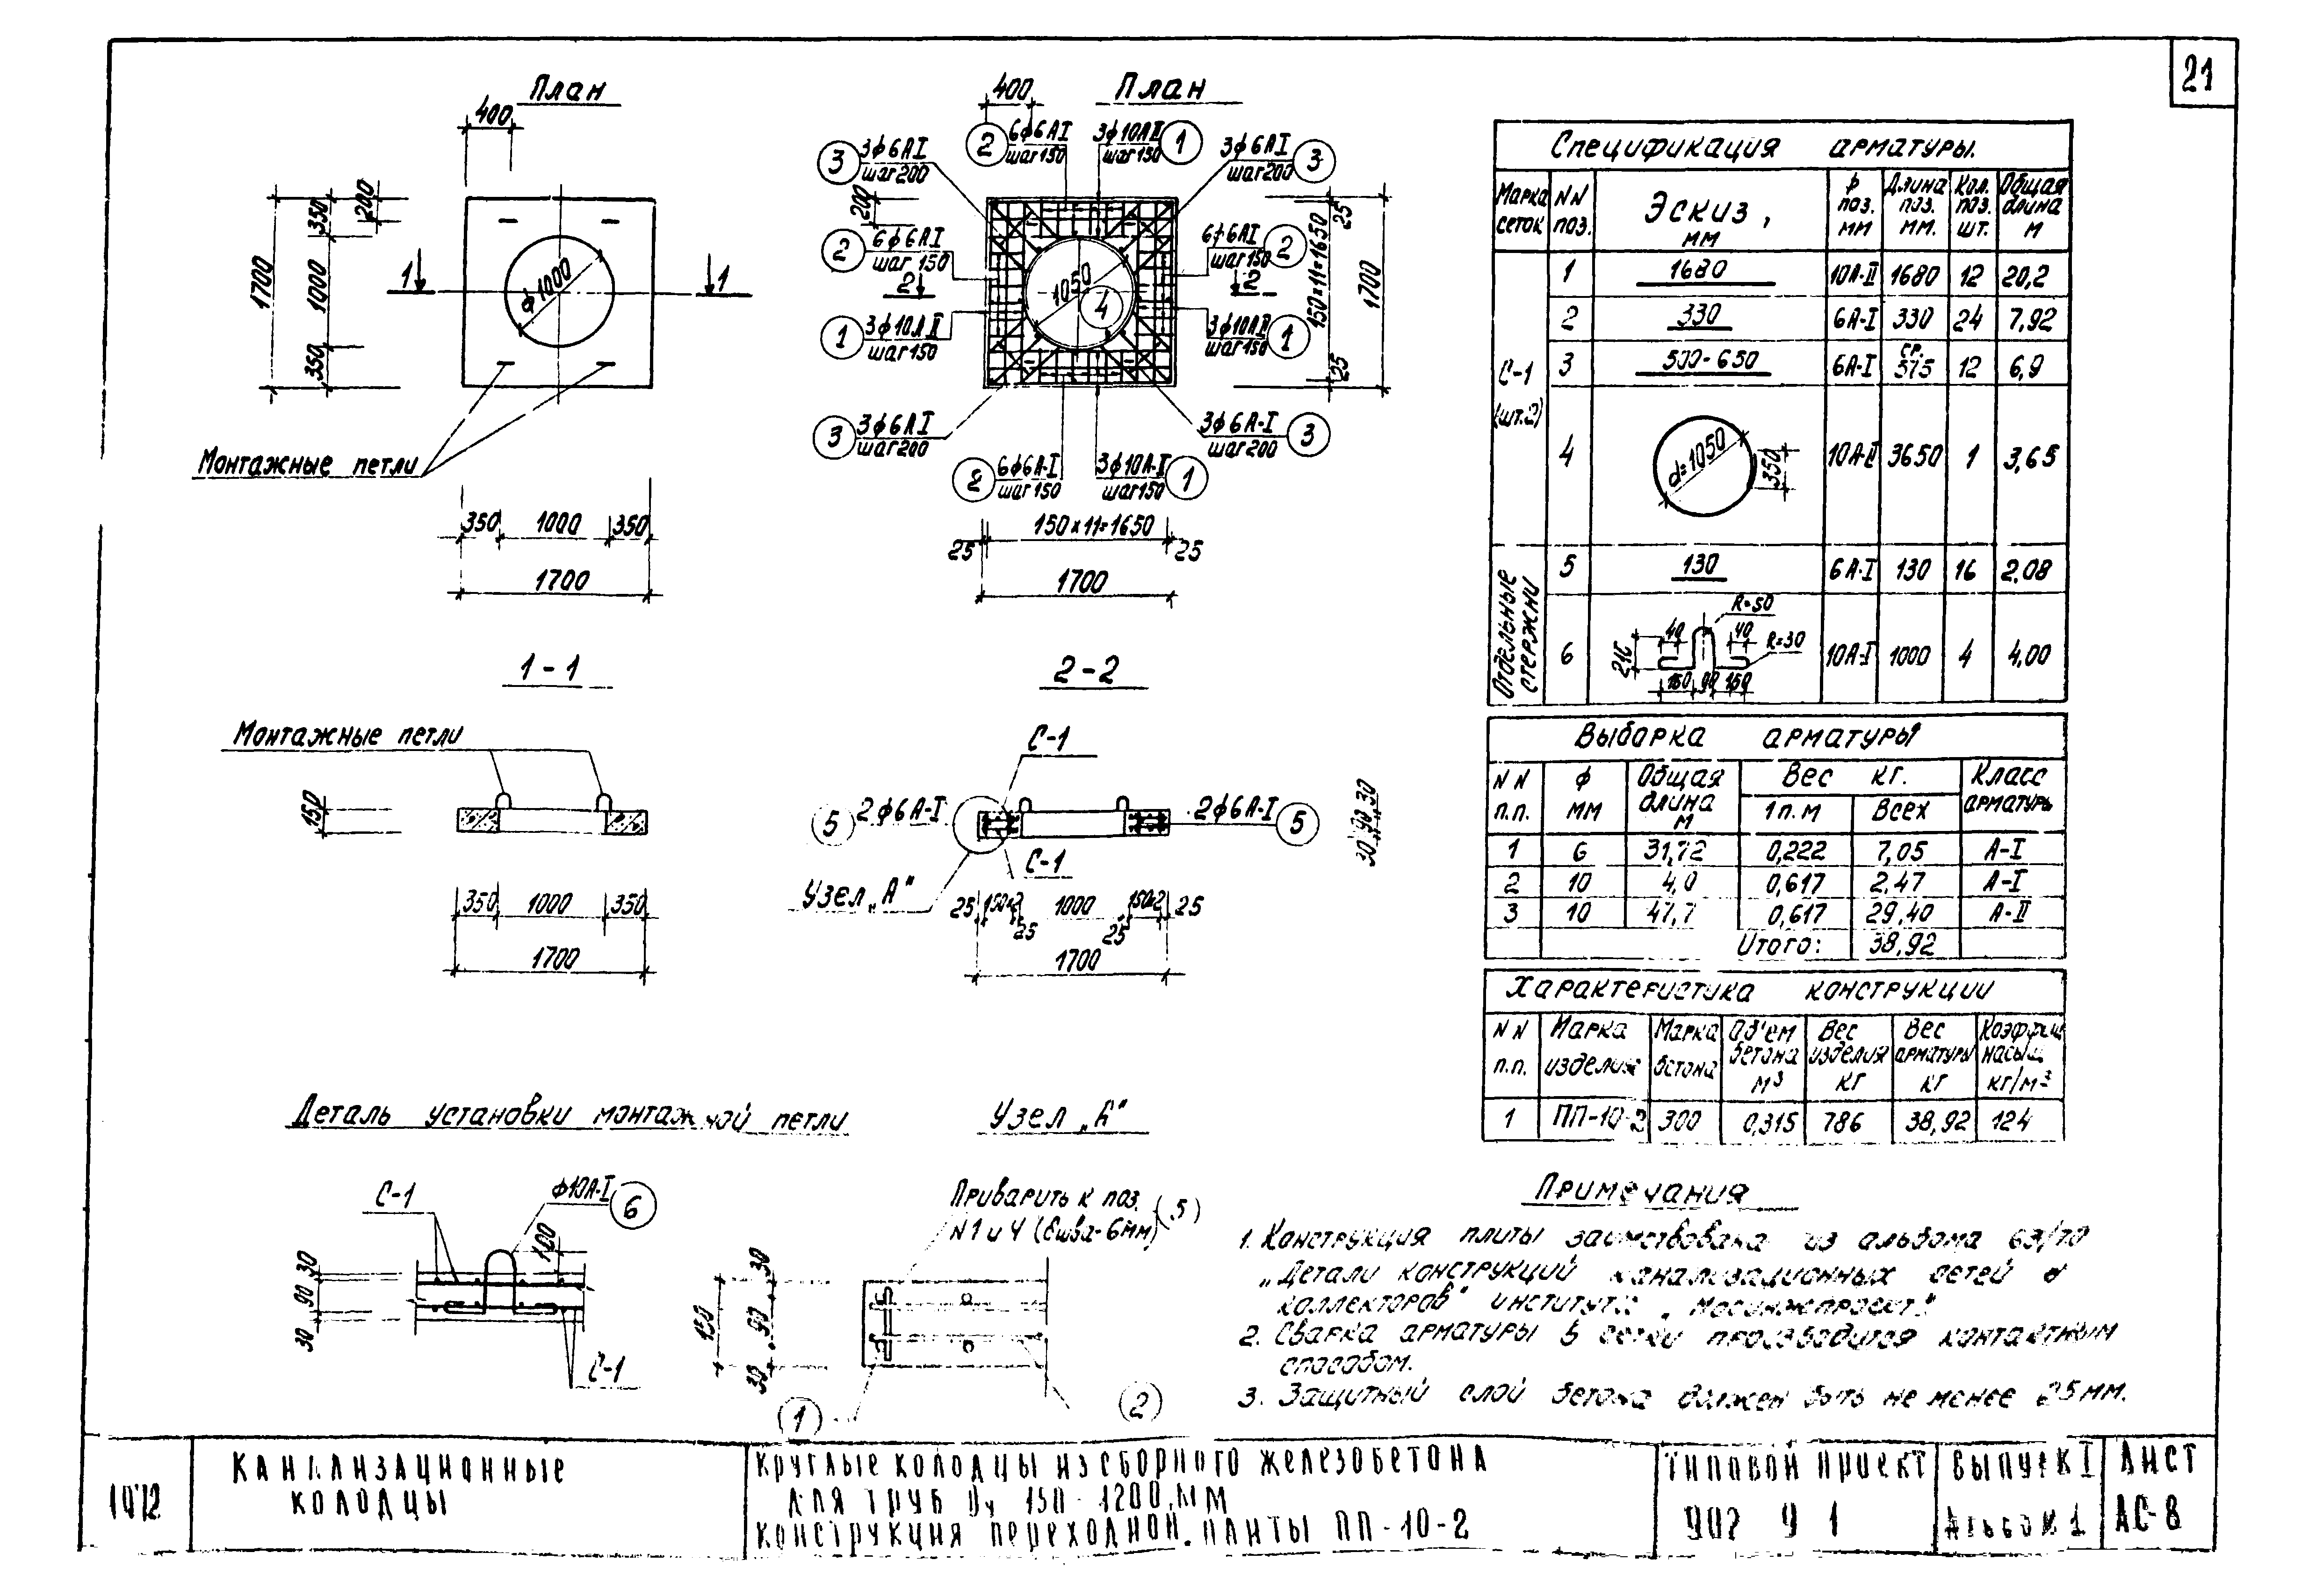 21
План
400
200
350
1000
350
1700
ф1000
1
1
Монтажные петли
350
1000
350
1700
План
400
3 3ф6АI
шаг200
2 6ф6АI
шаг150
3ф10АII 1
шаг150
3ф6АI 3
шаг200
200
2 6ф6АI
шаг 150
6ф6АI 2
шаг150
2
2
1050
4
1 3ф10АII
шаг150
3ф10АII 1
шаг150
25
150×11=1650
25
1700
3 3ф6АI
шаг200
3ф6А-I 3
шаг200
2 6ф6А-I
шаг150
3ф10А-I 1
шаг150
25
150×11=1650
25
1700
1-1
Монтажные петли
150
350
1000
350
1700
2-2
С-1
5 2ф6А-I
2ф6А-I 5
С-1
Узел „А"
30 90 30
25 150×2 25 1000 25 150×2 25
1700
Деталь установки монтажной петли
С-1
ф10А-I 6
100
30 90 30
С-1
Узел „А"
Приварить к поз. 5
N1 и 4 (hшва-6мм)
150
30 90 30
1
2
Спецификация арматуры.
Марка сеток
NN поз.
Эскиз, мм
ф поз. мм
Длина поз. мм.
Кол. поз. шт.
Общая длина м
С-1 (шт.2)
1 1680 10А-II 1680 12 20,2
2 330 6А-I 330 24 7,92
3 500-650 6А-I ср. 575 12 6,9
4 d=1050 350 10А-II 3650 1 3,65
Отдельные стержни
5 130 6А-I 130 16 2,08
6 R=50 40 40 R=30 216 150 90 150 10А-I 1000 4 4,00
Выборка арматуры
NN п.п.
ф мм
Общая длина м
Вес кг.
1п.м
Всех
Класс арматуры
1 6 31,72 0,222 7,05 А-I
2 10 4,0 0,617 2,47 А-I
3 10 47,7 0,617 29,40 А-II
Итого: 38,92
Характеристика конструкции
NN п.п.
Марка изделия
Марка бетона
Об'ем бетона м³
Вес изделия кг
Вес арматуры кг
Коэффиц насыщ кг/м³
1 ПП-10-2 300 0,315 786 38,92 124
Примечания
1. Конструкция плиты заимствована из альбома 63/70
„Детали конструкций канализационных сетей и
коллекторов" института „Мосинжпроект".
2. Сварка арматуры в сетки производится контактным
способом.
3. Защитный слой бетона должен быть не менее 25мм.
1972
Канализационные
колодцы
Круглые колодцы из сборного железобетона
для труб Dу 150-1200,мм
Конструкция переходной плиты ПП-10-2
Типовой проект
902 9 1
Выпуск I
Альбом 1
Лист
АС-8